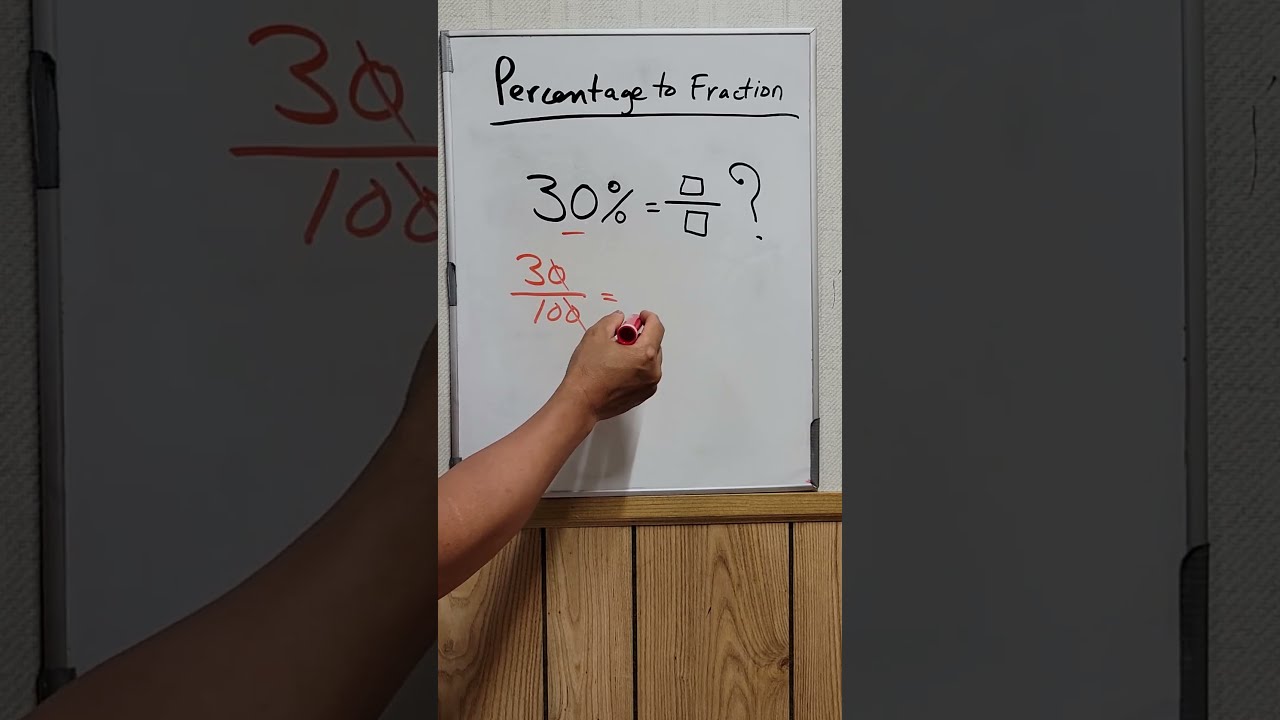 Percentage to Fraction
30% = □/□ ?
30/100 =